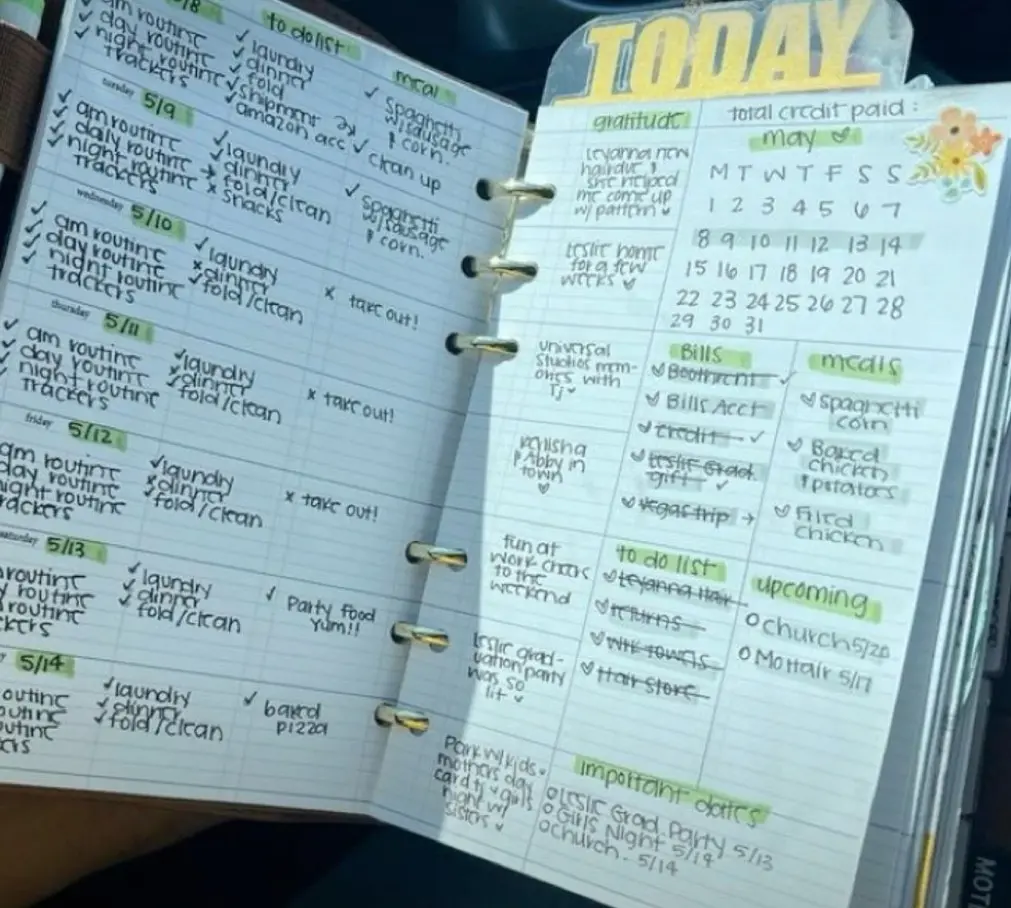 TODAY
5/8
am routine
day routine
night routine
trackers
to do list
✓ laundry
✓ dinner
✓ fold
✓ shipment
✓ amazon acc
meal
✓ spaghetti
w/sausage
& corn.
✓ clean up
tuesday 5/9
✓ am routine
✓ daily routine
✓ night routine
trackers
✓ laundry
✓ dinner
→ fold/clean
x snacks
✓ spaghetti
w/sausage
& corn.
wednesday 5/10
✓ am routine
✓ day routine
✓ night routine
✓ trackers
✓ laundry
x dinner
✓ fold/clean
x take out!
thursday 5/11
✓ am routine
✓ day routine
✓ night routine
✓ trackers
✓ laundry
x dinner
✓ fold/clean
x take out!
friday 5/12
am routine
day routine
night routine
trackers
✓ laundry
x dinner
✓ fold/clean
x take out!
saturday 5/13
routine
routine
routine
ckers
✓ laundry
✓ dinner
✓ fold/clean
✓ Party food
Yum!!
5/14
outine
outine
outine
✓ laundry
✓ dinner
✓ fold/clean
✓ baked
pizza
gratitude
Leyanna new
hairdue &
she helped
me come up
w/ pattern
Leslie home
for a few
weeks
universal
studios mem-
ories with
TJ
& Abby in
town
fun at
work cheers
to the
weekend
Leslie grad-
uation party
was so
lit
Park w/ kids
mothers day
card tj girls
night w/
sisters
total credit paid:
may
M T W T F S S
1 2 3 4 5 6 7
8 9 10 11 12 13 14
15 16 17 18 19 20 21
22 23 24 25 26 27 28
29 30 31
Bills
Boothrent ✓
Bills Acct
credit ✓
Leslie Grad
gift ✓
vegas trip →
meals
spaghetti
corn
Baked
chicken
& potatoes
Fried
chicken
to do list
Leyanna Hair
returns
Wrk towels
Hair store
upcoming
church 5/20
5/17
important dates
Leslie Grad Party 5/13
Girls Night 5/14
church. 5/14